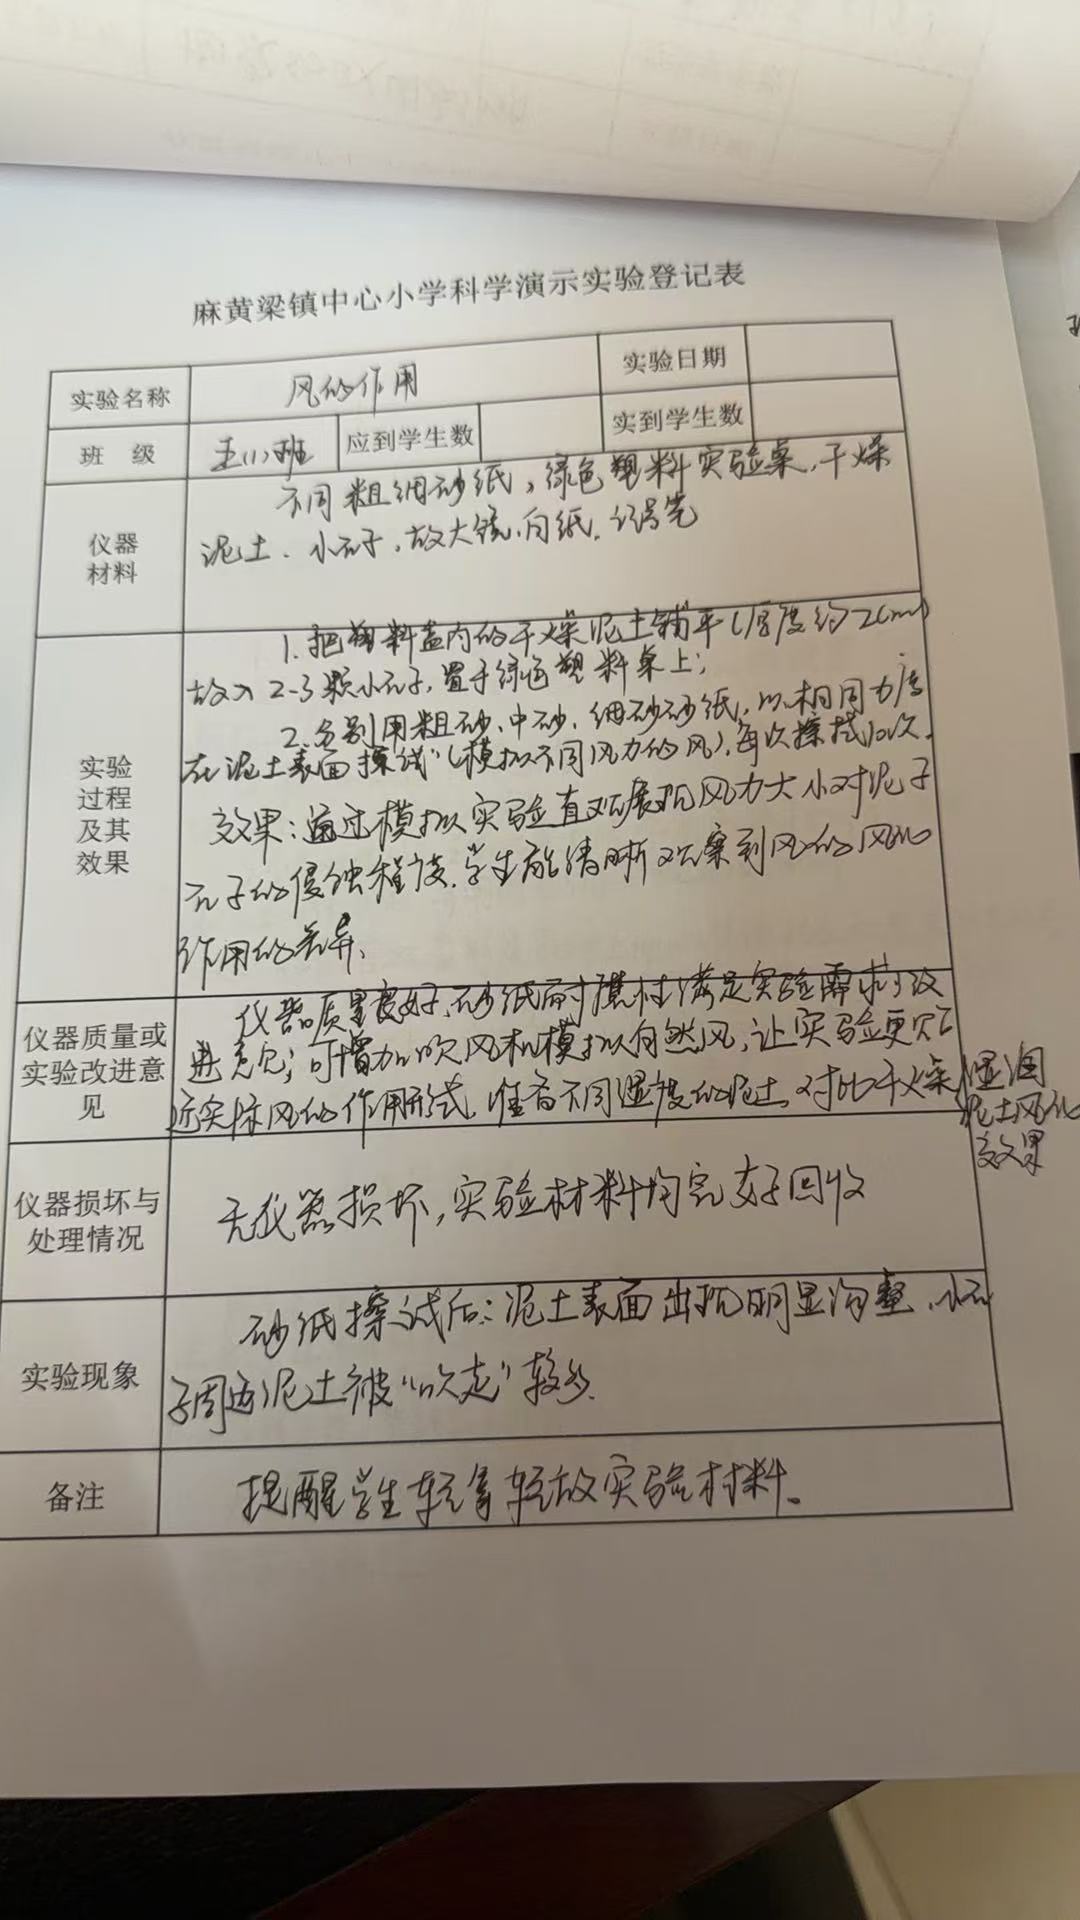 麻黄梁镇中心小学科学演示实验登记表
实验名称 风的作用 实验日期
班 级 五(1)班 应到学生数 实到学生数
仪器材料
不同粗细砂纸，绿色塑料实验桌，干燥
泥土、小石子，放大镜、白纸、记号笔
实验过程及其效果
1.把塑料盖内的干燥泥土铺平（厚度约2cm）
放入2-3颗小石子，置于绿色塑料桌上；
2.分别用粗砂、中砂、细砂砂纸，以相同力度
在泥土表面擦拭（模拟不同风力的风），每次擦拭10次。
效果：通过模拟实验直观展现风力大小对泥子
石子的侵蚀程度，学生能清晰观察到风的风化
作用的差异、
仪器质量或实验改进意见
仪器质量良好，砂纸耐磨性满足实验需求；改
进意见；可增加吹风机模拟自然风，让实验更贴
近实际风的作用形式，准备不同湿度的泥土，对比干燥湿润
泥土风化
效果
仪器损坏与处理情况
无仪器损坏，实验材料均完好回收
实验现象
砂纸擦试后：泥土表面出现明显沟壑、小石
子周边泥土被“吹走”较多
备注
提醒学生轻拿轻放实验材料。